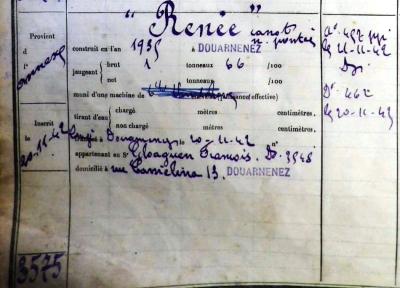 "Renée" canot
n. ponté
Provient
d
l'
annexe
construit en l'an 1935 à DOUARNENEZ
jaugeant brut 1 tonneaux 66 /100
net tonneaux /100
muni d'une machine de (effective)
tirant d'eau chargé mètres centimètres.
non chargé mètres centimètres.
Inscrit
le 20-11-42
Congé: Douarnenez 20-11-42
appartenant au Sr Gloaguen François. Dz 3948
n°
domicilié à rue 13. DOUARNENEZ
3575
Dt 457
le 21-11-42
Dz
Dt 462
le 20-11-43